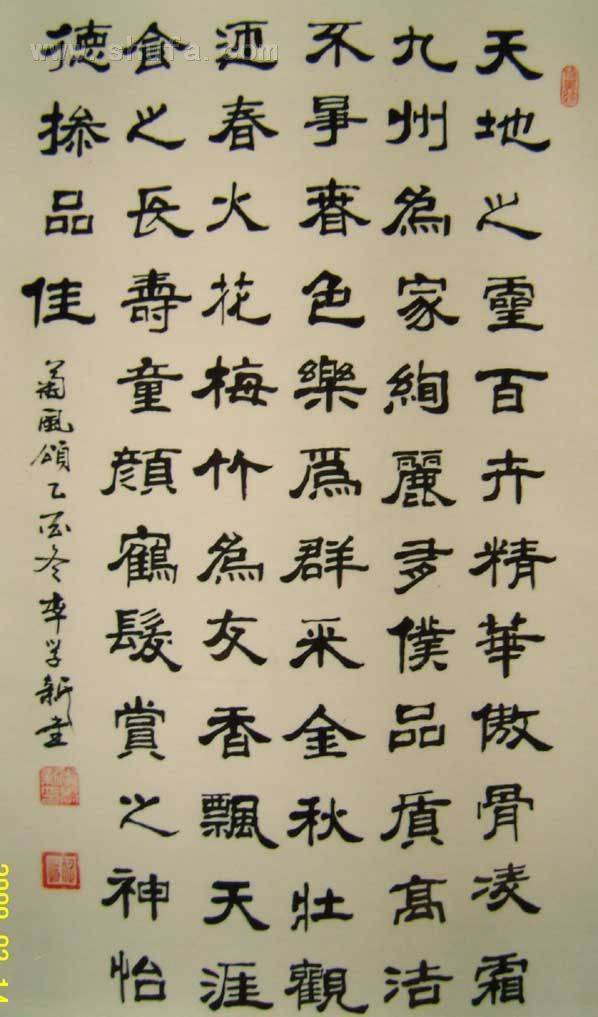 天地之靈百卉精華傲骨凌霜
九州為家絢麗多僕品質高洁
不爭春色樂為群采金秋壯觀
迎春火花梅竹為友香飄天涯
食之長壽童顏鶴髮賞之神怡
德掺品佳
菊風頌乙酉冬李学新書
www.shufa.com